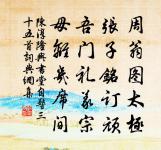 周翁图太极
张子铭订顽
吾门礼义宗
毋离几席间
陈淳隆兴书堂自警三
十五首词典网集